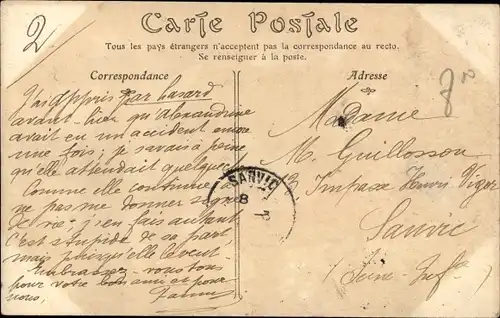 2
Carte Postale
Tous les pays étrangers n'acceptent pas la correspondance au recto.
Se renseigner à la poste.
Correspondance
J'ai appris par hasard
avant-hier qu'Alexandrine
avait eu un accident encore
une fois; je savais à peine
qu'elle attendait quelque
Comme elle continue
ne pas me donner signe
de vie j'en fais autant
C'est stupide de sa part,
mais puisqu'elle le veut.
Embrassez-vous tous
pour votre
Adresse
Madame
M. Guillosson
3 Impasse Henri Viger
Sanvic
Seine-Infre
SANVIC
8